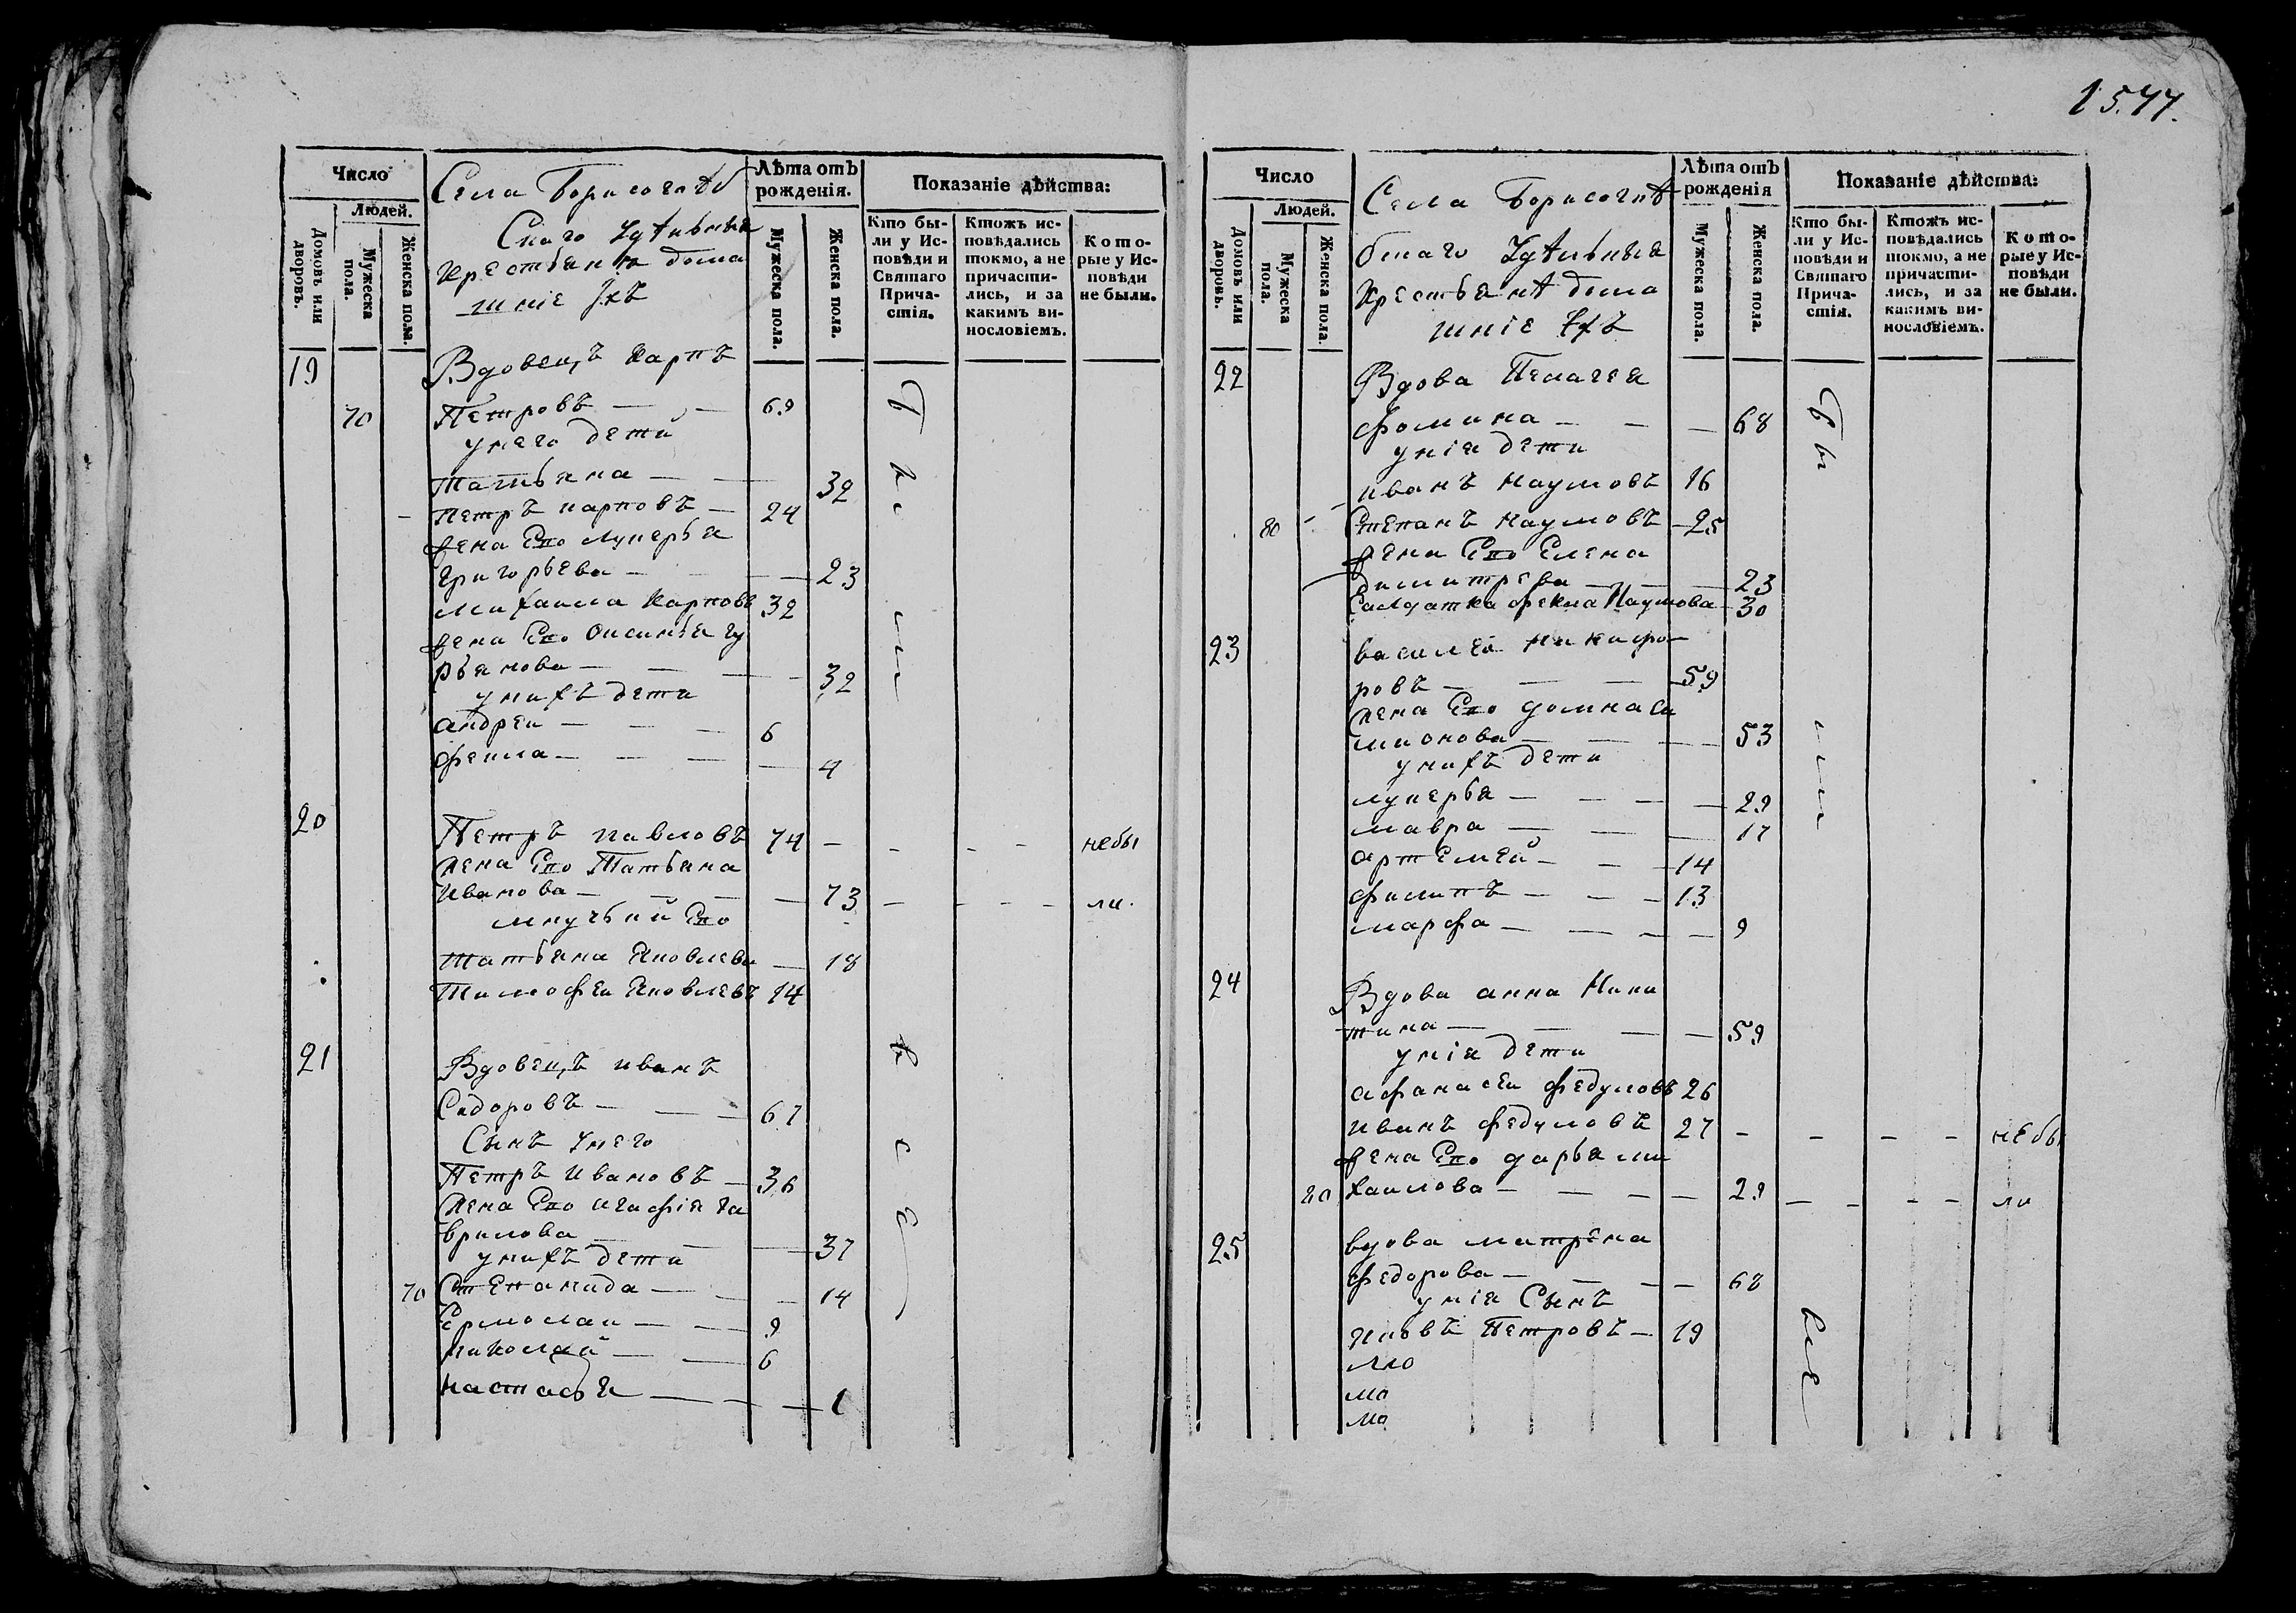 1577.
Число
Людей.
Домовъ или дворовъ.
Мужеска пола.
Женска пола.
Села Борисоглѣб
Скаго Удѣльныя
крестьянѣ дома
шніе Ихъ
Лѣта отъ рожденія.
Мужеска пола.
Женска пола.
Показаніе дѣйства:
Кто бы-
ли у Ис-
повѣди и
Святаго
Прича-
стія.
Ктожъ ис-
повѣдались
токмо, а не
причасти-
лись, и за
какимъ ви-
нословіемъ.
Кото-
рые у Ис-
повѣди
не были.
19 Вдовецъ Карпъ
70 Петровъ — — 69
унего дети
Татьяна — — 32
Петръ карповъ — 24
жена Его Лукерья
Григорьева — — 23
Михаила Карповъ 32
жена Его Оксинья Гу
рьянова — — 32
унихъ дети
андреи — — 6
фекла — — — 4
20 Петръ павловъ 74 — — — — небы
жена Его Татьяна
Иванова — — — 73 — — — — ли.
внучьки Его
Татьяна Яковлева — 18
Тимофеи Яковлевъ 14
21 Вдовецъ иванъ
Сидоровъ — — 67
Сынъ Унего
Петръ Ивановъ — 36
жена Его агафія га
врилова — — 37
унихъ дети
70 Степанида — — 14
Ермолаи — — 9
николай — — 6
настасья — — 1
Бы
ли
все
Число
Людей.
Домовъ или дворовъ.
Мужеска пола.
Женска пола.
Села Борисоглѣ
бскаго Удѣльныя
Крестьянѣ дома
шніе Ихъ
Лѣта отъ рожденія
Мужеска пола.
Женска пола.
Показаніе дѣйства:
Кто бы-
ли у Ис-
повѣди и
Святаго
Прича-
стія.
Ктожъ ис-
повѣдались
токмо, а не
причасти-
лись, и за
какимъ ви-
нословіемъ.
Кото-
рые у Ис-
повѣди
не были.
22 Вдова Пелагея
фомина — — — 68
унія дети
иванъ Наумовъ 16
80 Степанъ Наумовъ — 25
жена Его Елена
димитрева — — — 23
Салдатка фекла Наумова — 30
23 василеи Никифо
ровъ — — — 59
жена Его домна Си
мионова — — — 53
унихъ дети
лукерья — — — 29
мавра — — — 17
артемей — — 14
филипъ — — — 13
марфа — — — — 9
24 Вдова анна Ники
тина — — — — 59
унія дети
афанасеи федуловъ 26
иванъ федуловъ 27 — — — — небы
жена Его дарья ми
80 хаилова — — — — 29 — — — — ли
25 вдова матрена
федорова — — — — 68
унія Сынъ
яковъ Петровъ — 19
Бы
ли
все